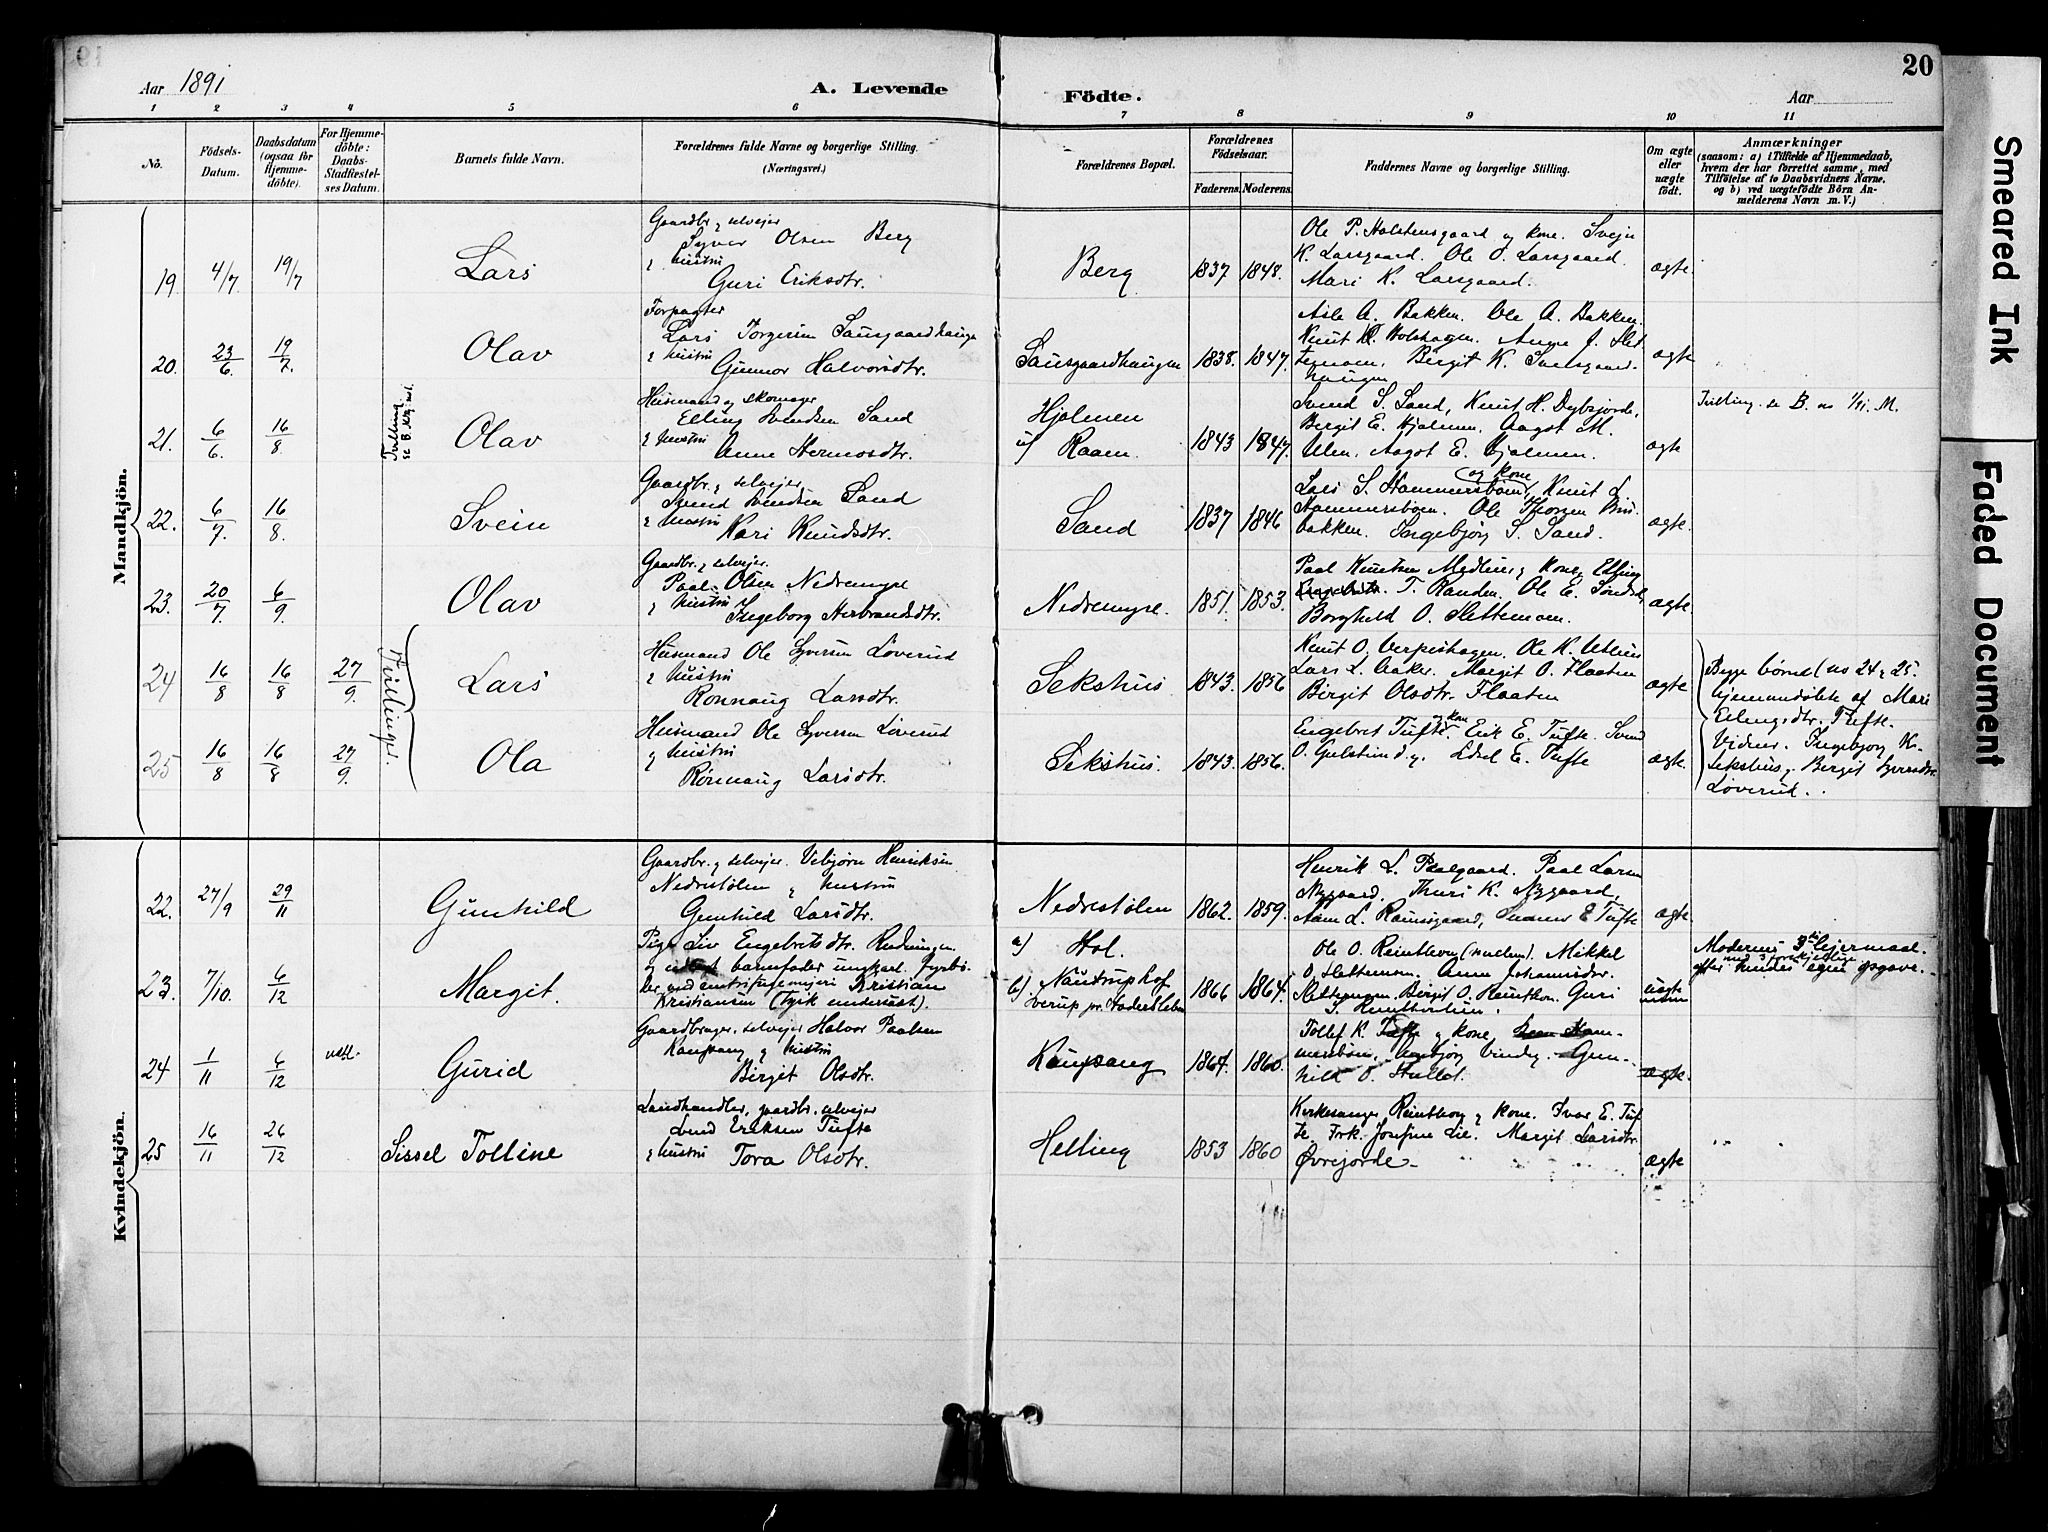 19
20
Aar 1891
A. Levende
Födte.
Aar
1 2 3 4 5 6 7 8 9 10 11
No.
Födsels-Datum.
Daabsdatum (ogsaa for Hjemmedöbte).
For Hjemmedöbte: Daabs-Stadfæstelses Datum.
Barnets fulde Navn.
Forældrenes fulde Navne og borgerlige Stilling.
(Næringsvei.)
Forældrenes Bopæl.
Forældrenes Födselsaar.
Faderens. Moderens.
Faddernes Navne og borgerlige Stilling.
Om ægte eller uægte födt.
Anmærkninger
(saasom: a) i Tilfælde af Hjemmedaab,
hvem der har forrettet samme, med
Tilföielse af to Daabsvidners Navne,
og b) ved uægtefödte Börn Anmelderens
Navn m. V.)
Mandkjön.
19. 4/7 19/7 Lars
Gaardbr. & selveier
Syver Olsen Berg
& hustru
Guri Eriksdtr.
Berg 1837 1848.
Ole P. Holstensgaard og kone. Svein
K. Larsgaard. Ole O. Larsgaard.
Mari K. Larsgaard.
ægte
20. 23/6 19/7 Olav
Forpagter
Lars Torgersen Sausgaardhaugen
& hustru
Gunnor Halvorsdtr.
Sausgaardhaugen 1838. 1847.
Asle A. Bakken. Ole A. Bakken.
Knut K. Holshagen. Anne J. Slet
temoen. Birgit K. Susgaard
haugen
ægte
21. 6/6 16/8
Tvilling
Olav
Husmand og skomager
Elling Svendsen Sand
& hustru
Anne Hermosdtr.
Hjolmen
u/ Raaen. 1843 1847.
Svend S. Sand, Knut H. Dybsjorde,
Birgit E. Hjolmen, Aagot M.
Ulen, Aagot E. Hjolmen.
ægte
Tvilling. se B. no 1/91. M.
22. 6/7. 16/8. Svein
Gaardbr. & selveier
Svend Svendsen Sand
& hustru
Kari Knudsdtr.
Sand 1837 1846
og kone
Lars S. Hammersbøen, Knut L.
Hammersbøen. Ole Thorsen
bakken. Ingebjørg S. Sand.
ægte
23. 20/7 6/9. Olav
Gaardbr. & selveier.
Paal Olsen Nedremyre
& hustru
Ingeborg Herbrandsdtr.
Nedremyre. 1851. 1853.
Paal Knutsen Medlien & kone, Elling
T. Randen. Ole E. Sønds
Borghild O. Slettemoen.
ægte.
Tvillinger.
24 16/8 16/8 27/9. Lars
Husmand Ole Syversen Løverud
& hustru
Rønnaug Larsdtr.
Sekshus 1843. 1856
Knut O. Verpeshagen. Ole K. Uthus
Lars L. Aaker. Margit O. Flaaten
Birgit Olsdtr. Flaaten
ægte
Begge børned no 24 & 25
hjemmedøbte af Mari
Erlingsdtr. Tufte.
Vidner. Ingebjørg K.
Sekshus & Birgit Syversdtr.
Løverud.
25 16/8 16/8 27/9. Ola
Husmand Ole Syversen Løverud
& hustru
Rønnaug Larsdtr.
Sekshus. 1843. 1856.
og kone
Engebret Tufte. Erik E. Tufte. Svend
O. Gulstund & Edel E. Tufte
ægte.
Kvindekjön.
22. 27/9 29/11 Gunhild
Gaardbr. & selveier. Vebjørn Henriksen
Nedrestølen & hustru
Gunhild Larsdtr.
Nedrestølen 1862. 1859.
Henrik L. Paalgaard. Paal Larsen
Nygaard, Thuri K. Nygaard,
L. Raunsgaard, E Tufte
ægte.
23. 7/10. 6/12 Margit.
Pige Liv Engebretsdtr. Rudningen.
og barnefader ungkarl.
ved centrifugemeieri Kristian
Kristiansen (Tysk undersaat).
a) Hol.
b) Nautrup hof
Øverup pr. Haderslaben 1866 1864.
Ole O. Reinthon. Mikkel
O. Slettemoen. Anne Johannesdtr.
Slettemoen. Birgit O. Reinthon. Guri
S. Reinthon.
uægte
Moderens 3die leiermaal
med 3 forskjellige
efter hendes egen opgave.
24 1/11 6/12 Gurid
Gaardbruger, selveier Halvor Paalsen
Kaupang & hustru
Birgit Olsdtr.
Kaupang 1867. 1860.
Tollef K. Tufte & kone, Ham
mersbøen, Vindeg. Gun-
hild O. Stulldt.
ægte.
25 16/11 26/12 Sissel Tolline
Landhandler, gaardbr., selveier
Svend Eriksen Tufte
& hustru Tora Olsdtr.
Helling 1853 1860
Kirkesanger Reinthon & kone. Ivar E. Tuf-
te. Frk. Josefine Lie. Margit Larsdtr.
Øvrejorde
ægte
Smeared Ink
Faded Document